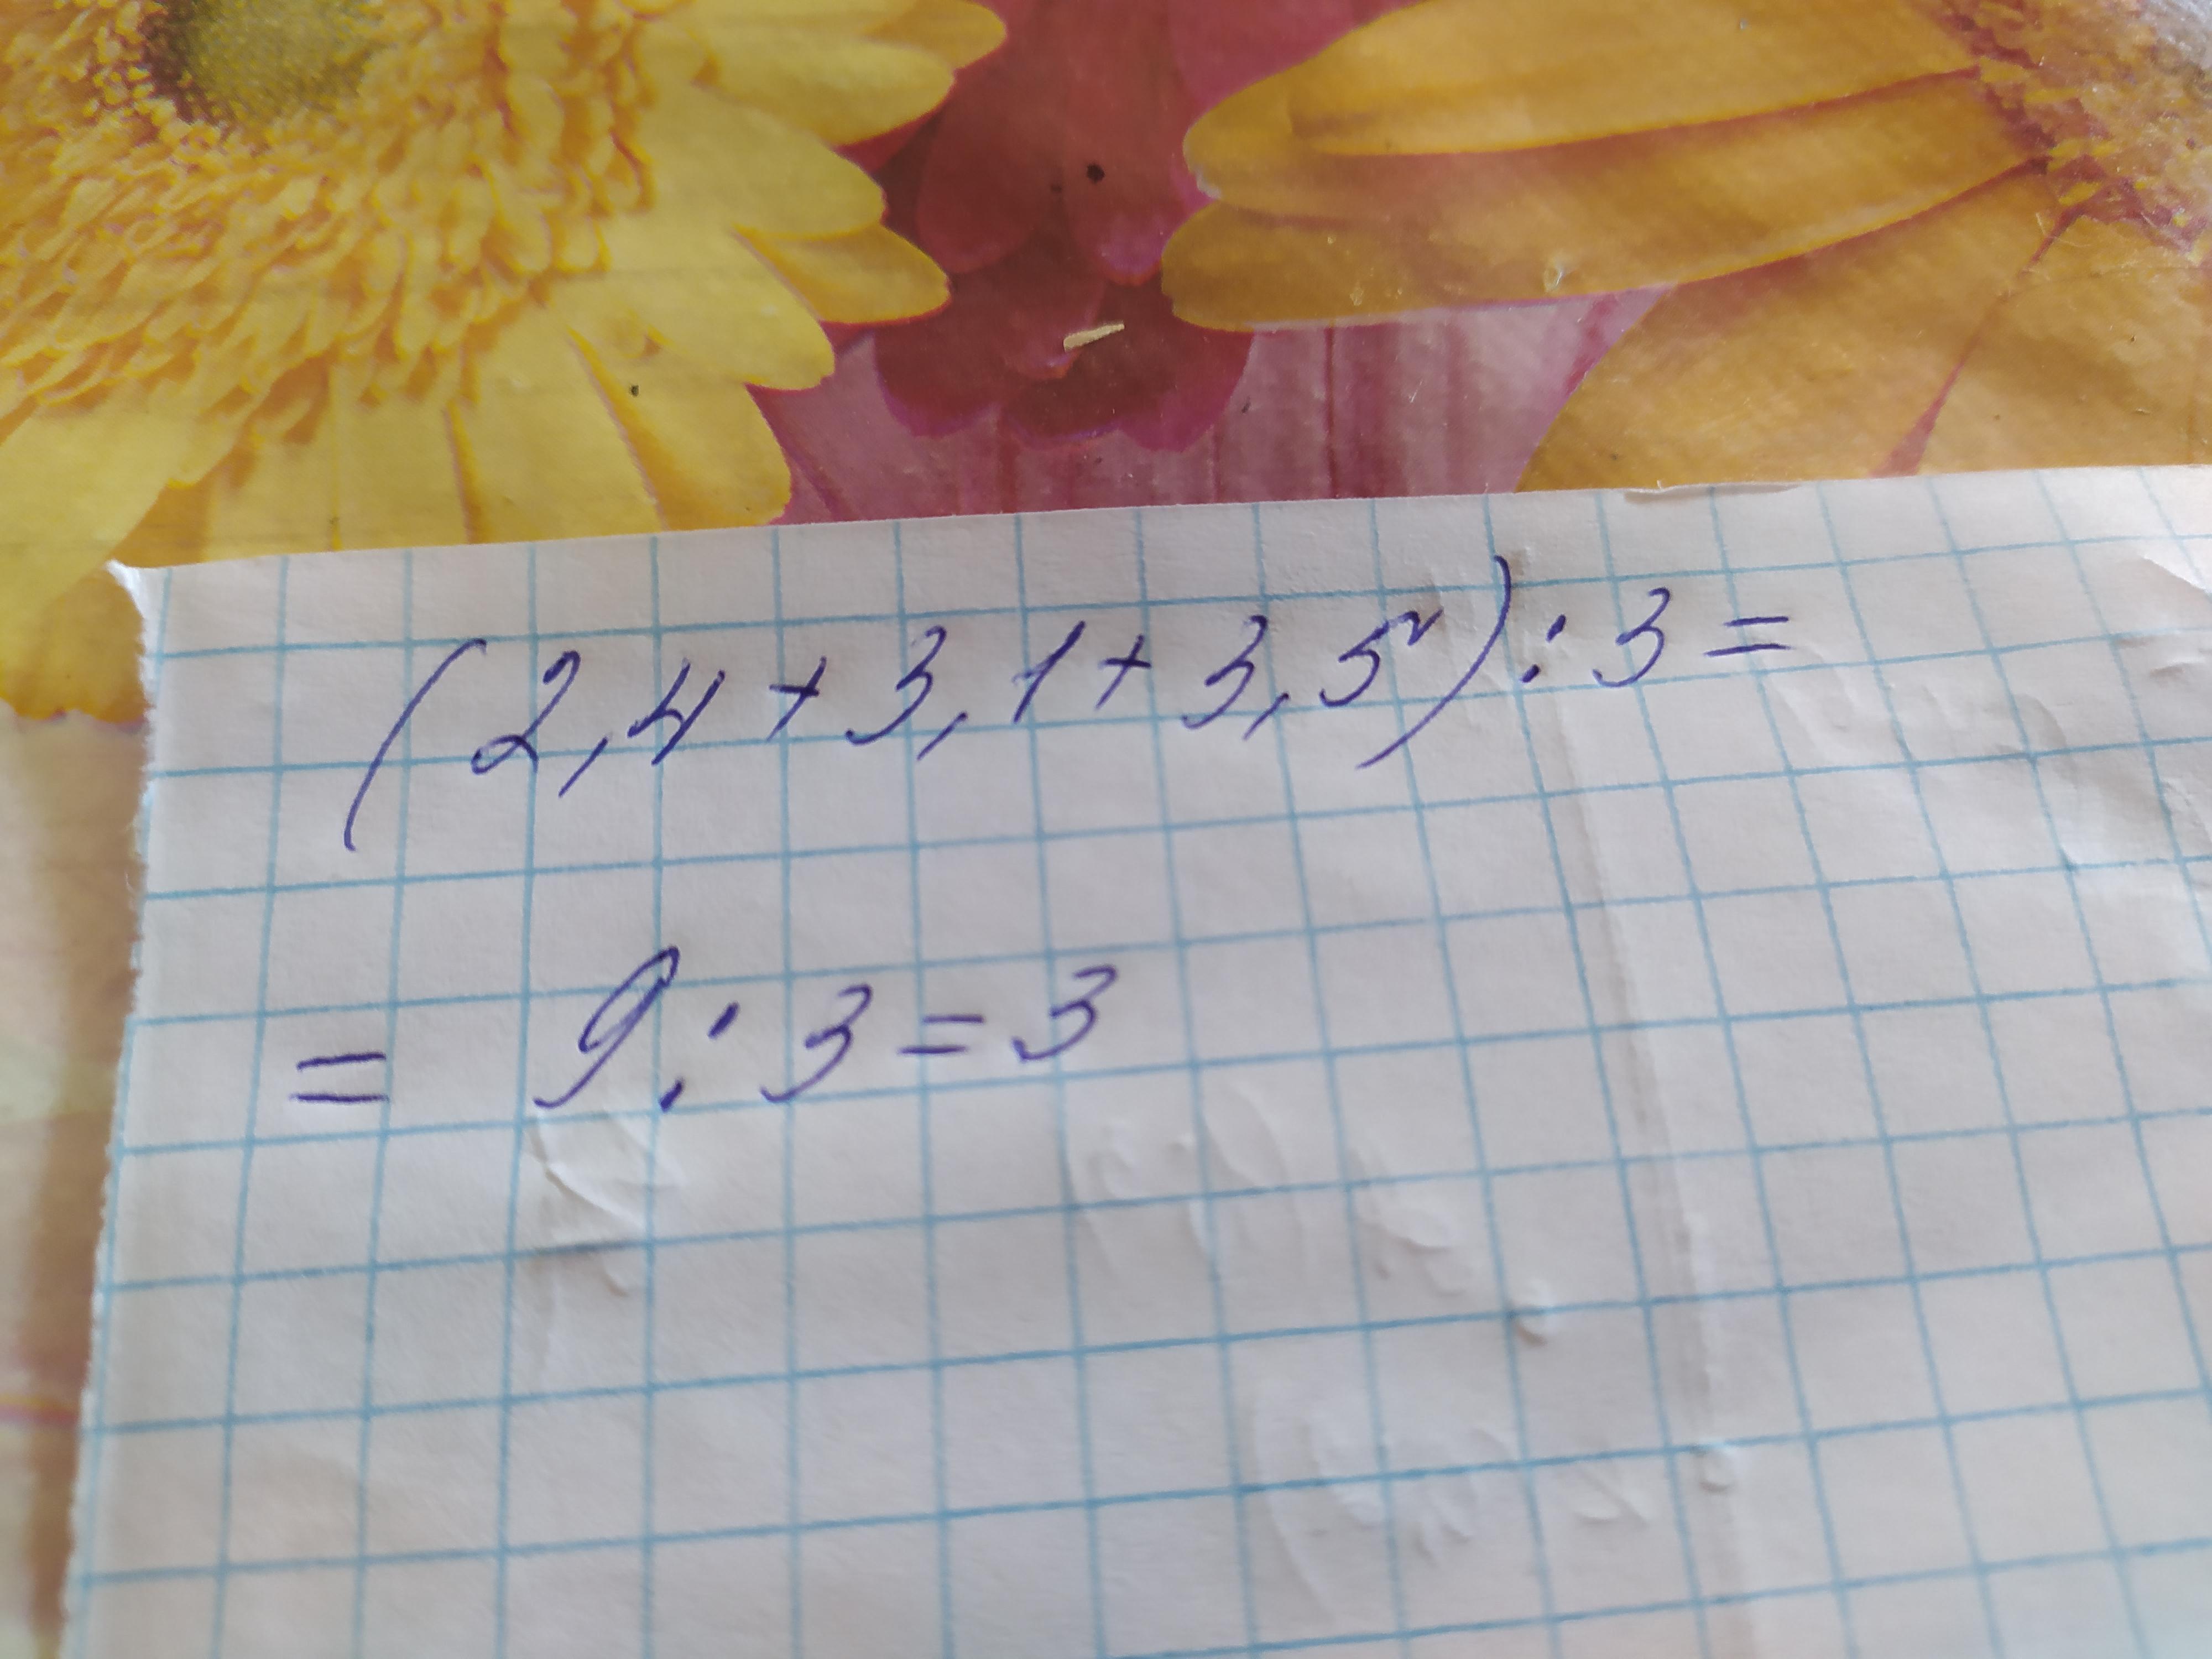 (2,4+3,1+3,5):3=
= 9:3=3